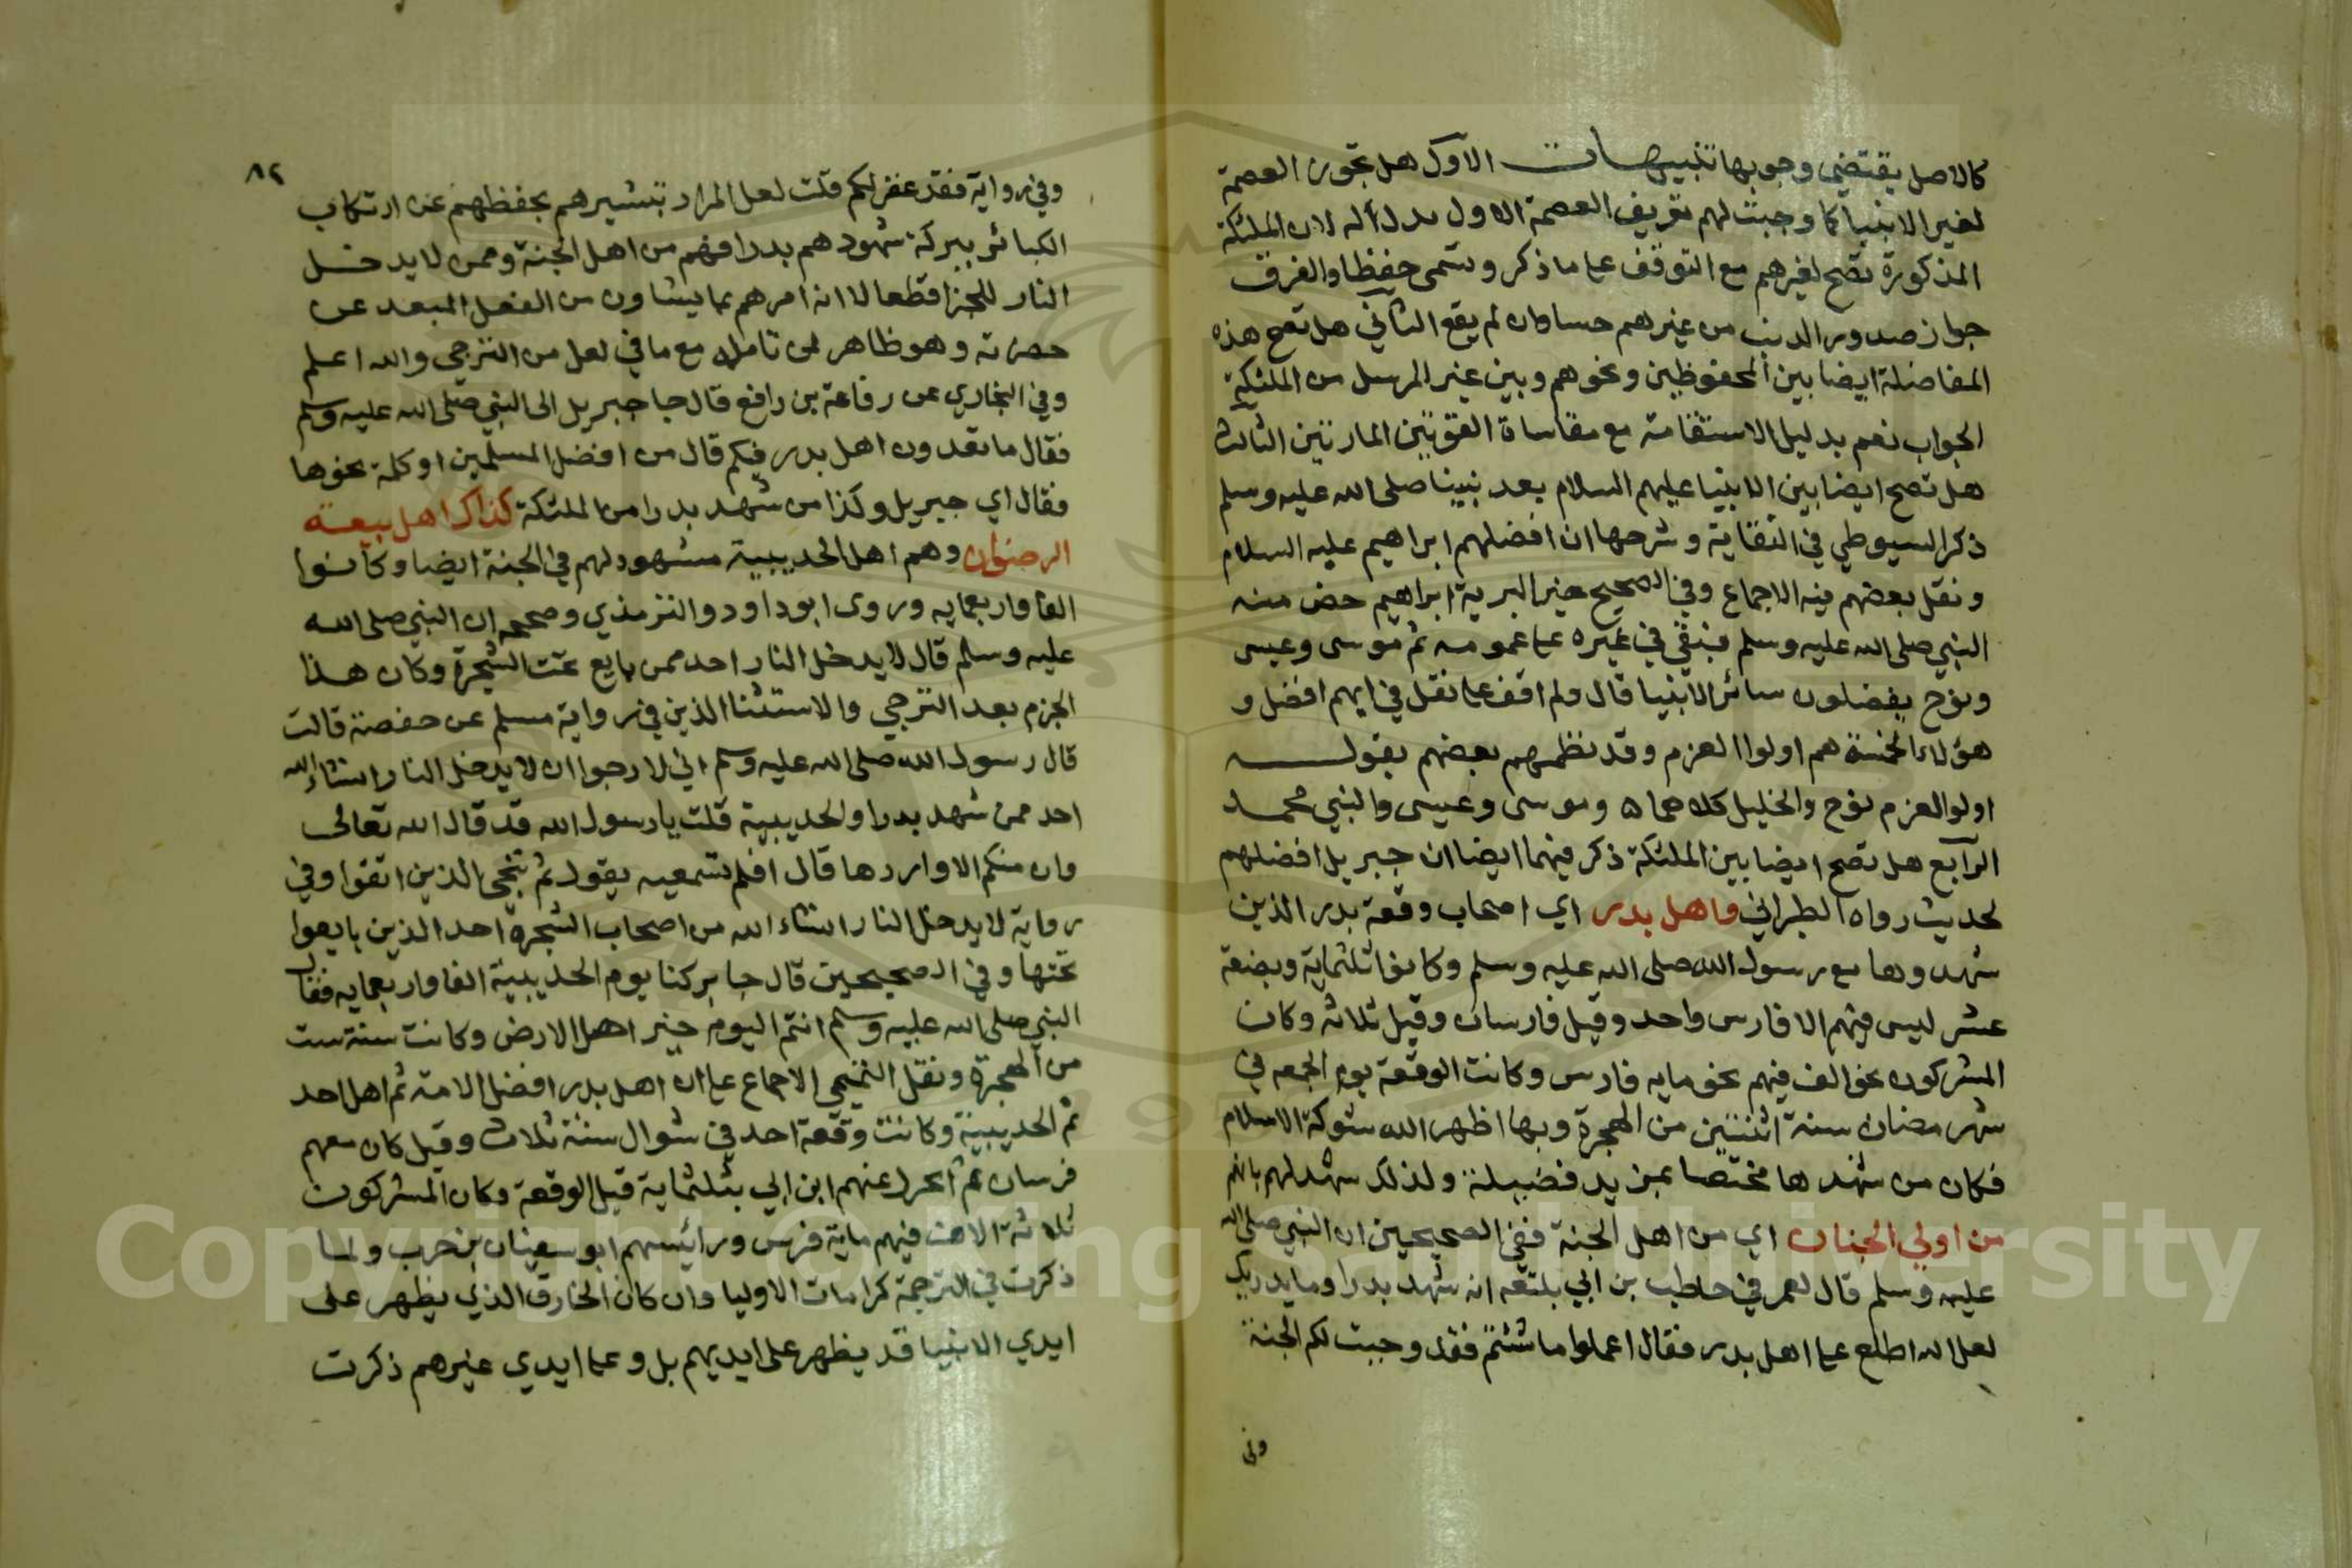 كالاصل يقتضي وجوبها تنبيهات الاول هل تجوز العصمة
لغير الانبيا كما وجبت لهم تعريف العصمة الاول يدل له لان الملئكة
المذكورة تصح لغيرهم مع التوقف على ما ذكر وتسمى حفظا والفرق
جواز صدور الذنب من غيرهم حسا وان لم يقع الثاني هل تصح هذه
المفاضلة ايضا بين المحفوظين ونحوهم وبين غير المرسل من الملئكة
الجواب نعم بدليل الاستقامة مع مقاساة القوتين المارتين الثالث
هل تصح ايضا بين الانبيا عليهم السلام بعد نبينا صلى الله عليه وسلم
ذكر السيوطي في النقاية وشرحها ان افضلهم ابراهيم عليه السلام
ونقل بعضهم فيه الاجماع وفي الصحيح خير البرية ابراهيم خص منه
النبي صلى الله عليه وسلم فبقي في غيره على عمومه ثم موسى وعيسى
ونوح يفضلون سائر الانبيا قال ولم اقف على نقل في ايهم افضل و
هؤلاء الخمسة هم اولوا العزم وقد نظمهم بعضهم بقوله
اولوا العزم نوح والخليل كلاهما ۵ وموسى وعيسى والنبي محمد
الرابع هل تصح ايضا بين الملئكة ذكر فيهما ايضا ان جبريل افضلهم
لحديث رواه الطبراني واهل بدر اي اصحاب وقعة بدر الذين
شهدوها مع رسول الله صلى الله عليه وسلم وكانوا ثلثماية وبضعة
عشر ليس فيهم الا فارس واحد وقيل فارسان وقيل ثلاثة وكان
المشركون نحو الف فيهم نحو مايه فارس وكانت الوقعة يوم الجمعه في
شهر رمضان سنة اثنتين من الهجرة وبها اظهر الله شوكة الاسلام
فكان من شهدها مختصا بمزيد فضيلة ولذلك شهد لهم بانهم
من اولي الجنان اي من اهل الجنة ففي الصحيحين ان النبي صلى الله
عليه وسلم قال لعمر في حاطب بن ابي بلتعه انه شهد بدرا وما يدريك
لعل الله اطلع على اهل بدر فقال اعملوا ما شئتم فقد وجبت لكم الجنة
وفي
٨٢
وفي رواية فقد غفر لكم قلت لعل المراد تبشيرهم بحفظهم عن ارتكاب
الكبائر ببركة شهودهم بدرا فهم من اهل الجنة وممن لا يدخل
النار للجزا قطعا لا انه امرهم بما يشاون من الفعل المبعد عن
حضرته وهو ظاهر لمن تامله مع ما في لعل من الترجي والله اعلم
وفي البخاري عن رفاعة بن رافع قال جا جبريل الى النبي صلى الله عليه وسلم
فقال ما تعدون اهل بدر فيكم قال من افضل المسلمين او كلمة نحوها
فقال اي جبريل وكذا من شهد بدرا من الملئكة كذاك اهل بيعة
الرضوان وهم اهل الحديبية مشهود لهم في الجنة ايضا وكانوا
الفا واربعمايه وروى ابوداود والترمذي وصححه ان النبي صلى الله
عليه وسلم قال لا يدخل النار احد ممن بايع تحت الشجرة وكان هذا
الجزم بعد الترجي والاستثنا الذين في رواية مسلم عن حفصة قالت
قال رسول الله صلى الله عليه وسلم اني لارجوا ان لا يدخل النار انشاء الله
احد ممن شهد بدرا والحديبية قلت يا رسول الله قد قال الله تعالى
وان منكم الا واردها قال افلم تسمعيه يقول ثم ننجي الذين اتقوا وفي
رواية لا يدخل النار انشاء الله من اصحاب الشجرة احد الذين بايعوا
تحتها وفي الصحيحين قال جابر كنا يوم الحديبية الفا واربعمايه فقال
النبي صلى الله عليه وسلم انتم اليوم خير اهل الارض وكانت سنة ست
من الهجرة ونقل التميمي الاجماع على ان اهل بدر افضل الامة ثم اهل احد
ثم الحديبية وكانت وقعة احد في شوال سنة ثلاث وقيل كان معهم
فرسان ثم انخزل عنهم ابن ابي بثلثماية قبل الوقعة وكان المشركون
ثلاثة الاف فيهم ماية فرس ورائيسهم ابو سفيان بن حرب ولما
ذكرت في الترجمة كرامات الاوليا وان كان الخارق الذي يظهر على
ايدي الانبيا قد يظهر على ايديهم بل وعلى ايدي غيرهم ذكرت